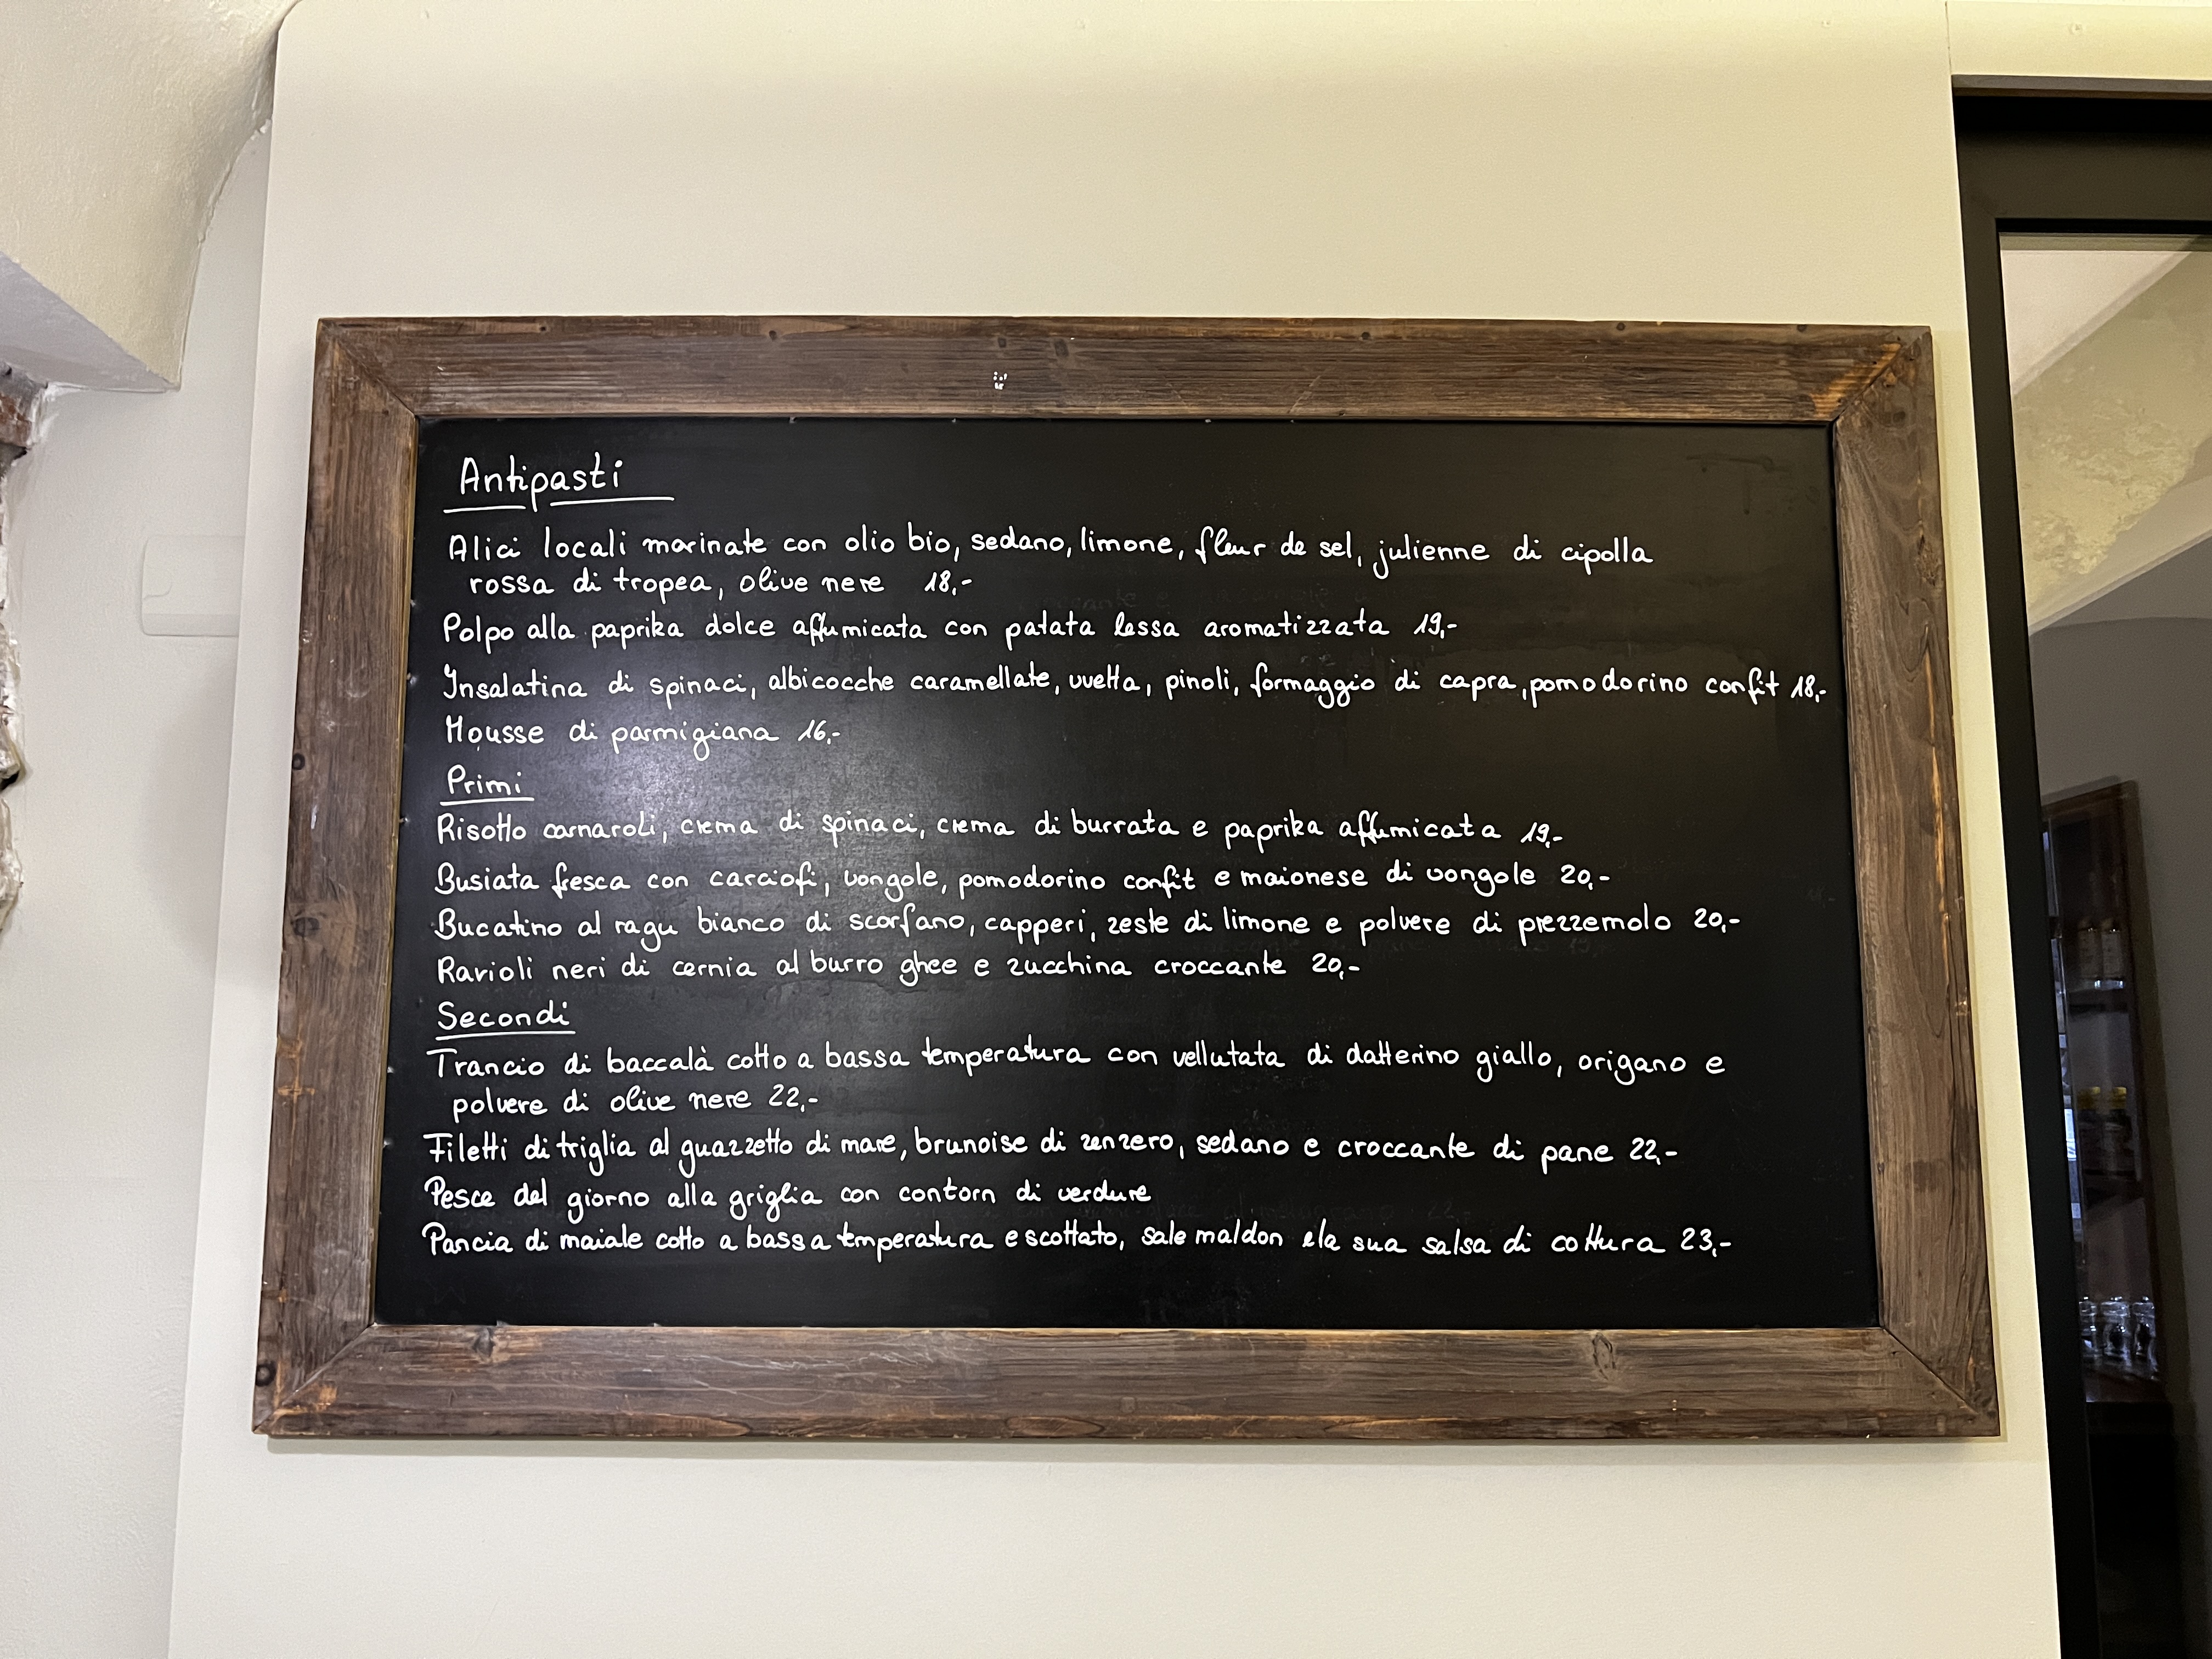 Antipasti
Alici locali marinate con olio bio, sedano, limone, fleur de sel, julienne di cipolla
rossa di tropea, olive nere 18,-
Polpo alla paprika dolce affumicata con patata lessa aromatizzata 19,-
Insalatina di spinaci, albicocche caramellate, uvetta, pinoli, formaggio di capra, pomodorino confit 18,-
Mousse di parmigiana 16,-
Primi
Risotto carnaroli, crema di spinaci, crema di burrata e paprika affumicata 19,-
Busiata fresca con carciofi, vongole, pomodorino confit e maionese di vongole 20,-
Bucatino al ragu bianco di scorfano, capperi, zeste di limone e polvere di prezzemolo 20,-
Ravioli neri di cernia al burro ghee e zucchina croccante 20,-
Secondi
Trancio di baccalà cotto a bassa temperatura con vellutata di datterino giallo, origano e
polvere di olive nere 22,-
Filetti di triglia al guazzetto di mare, brunoise di zenzero, sedano e croccante di pane 22,-
Pesce del giorno alla griglia con contorn di verdure
Pancia di maiale cotto a bassa temperatura e scottato, sale maldon e la sua salsa di cottura 23,-